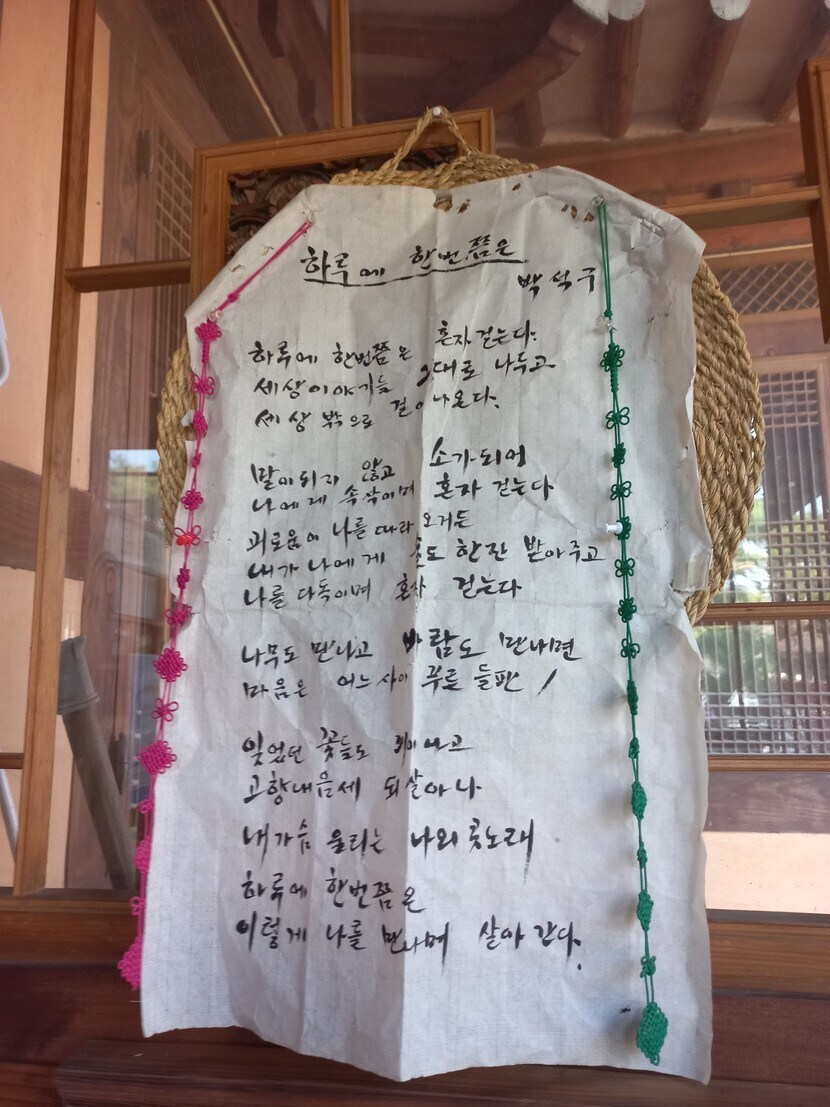 하루에 한번쯤은
백석구
하루에 한번쯤은 혼자걷는다.
세상이야기들 그대로 나두고
세상 밖으로 걸어나온다.
말이되지 않고 소가되어
나에게 속삭이며 혼자 걷는다
괴로움이 나를 따라 오거든
내가 나에게 술도 한잔 받아주고
나를 다독이며 혼자 걷는다
나무도 만나고 바람도 만나면
마음은 어느사이 푸른 들판 /
잊었던 꽃들도 피어나고
고향내음세 되살아나
내가슴 울리는 나의 풋노래
하루에 한번쯤은
이렇게 나를 만나며 살아 간다.